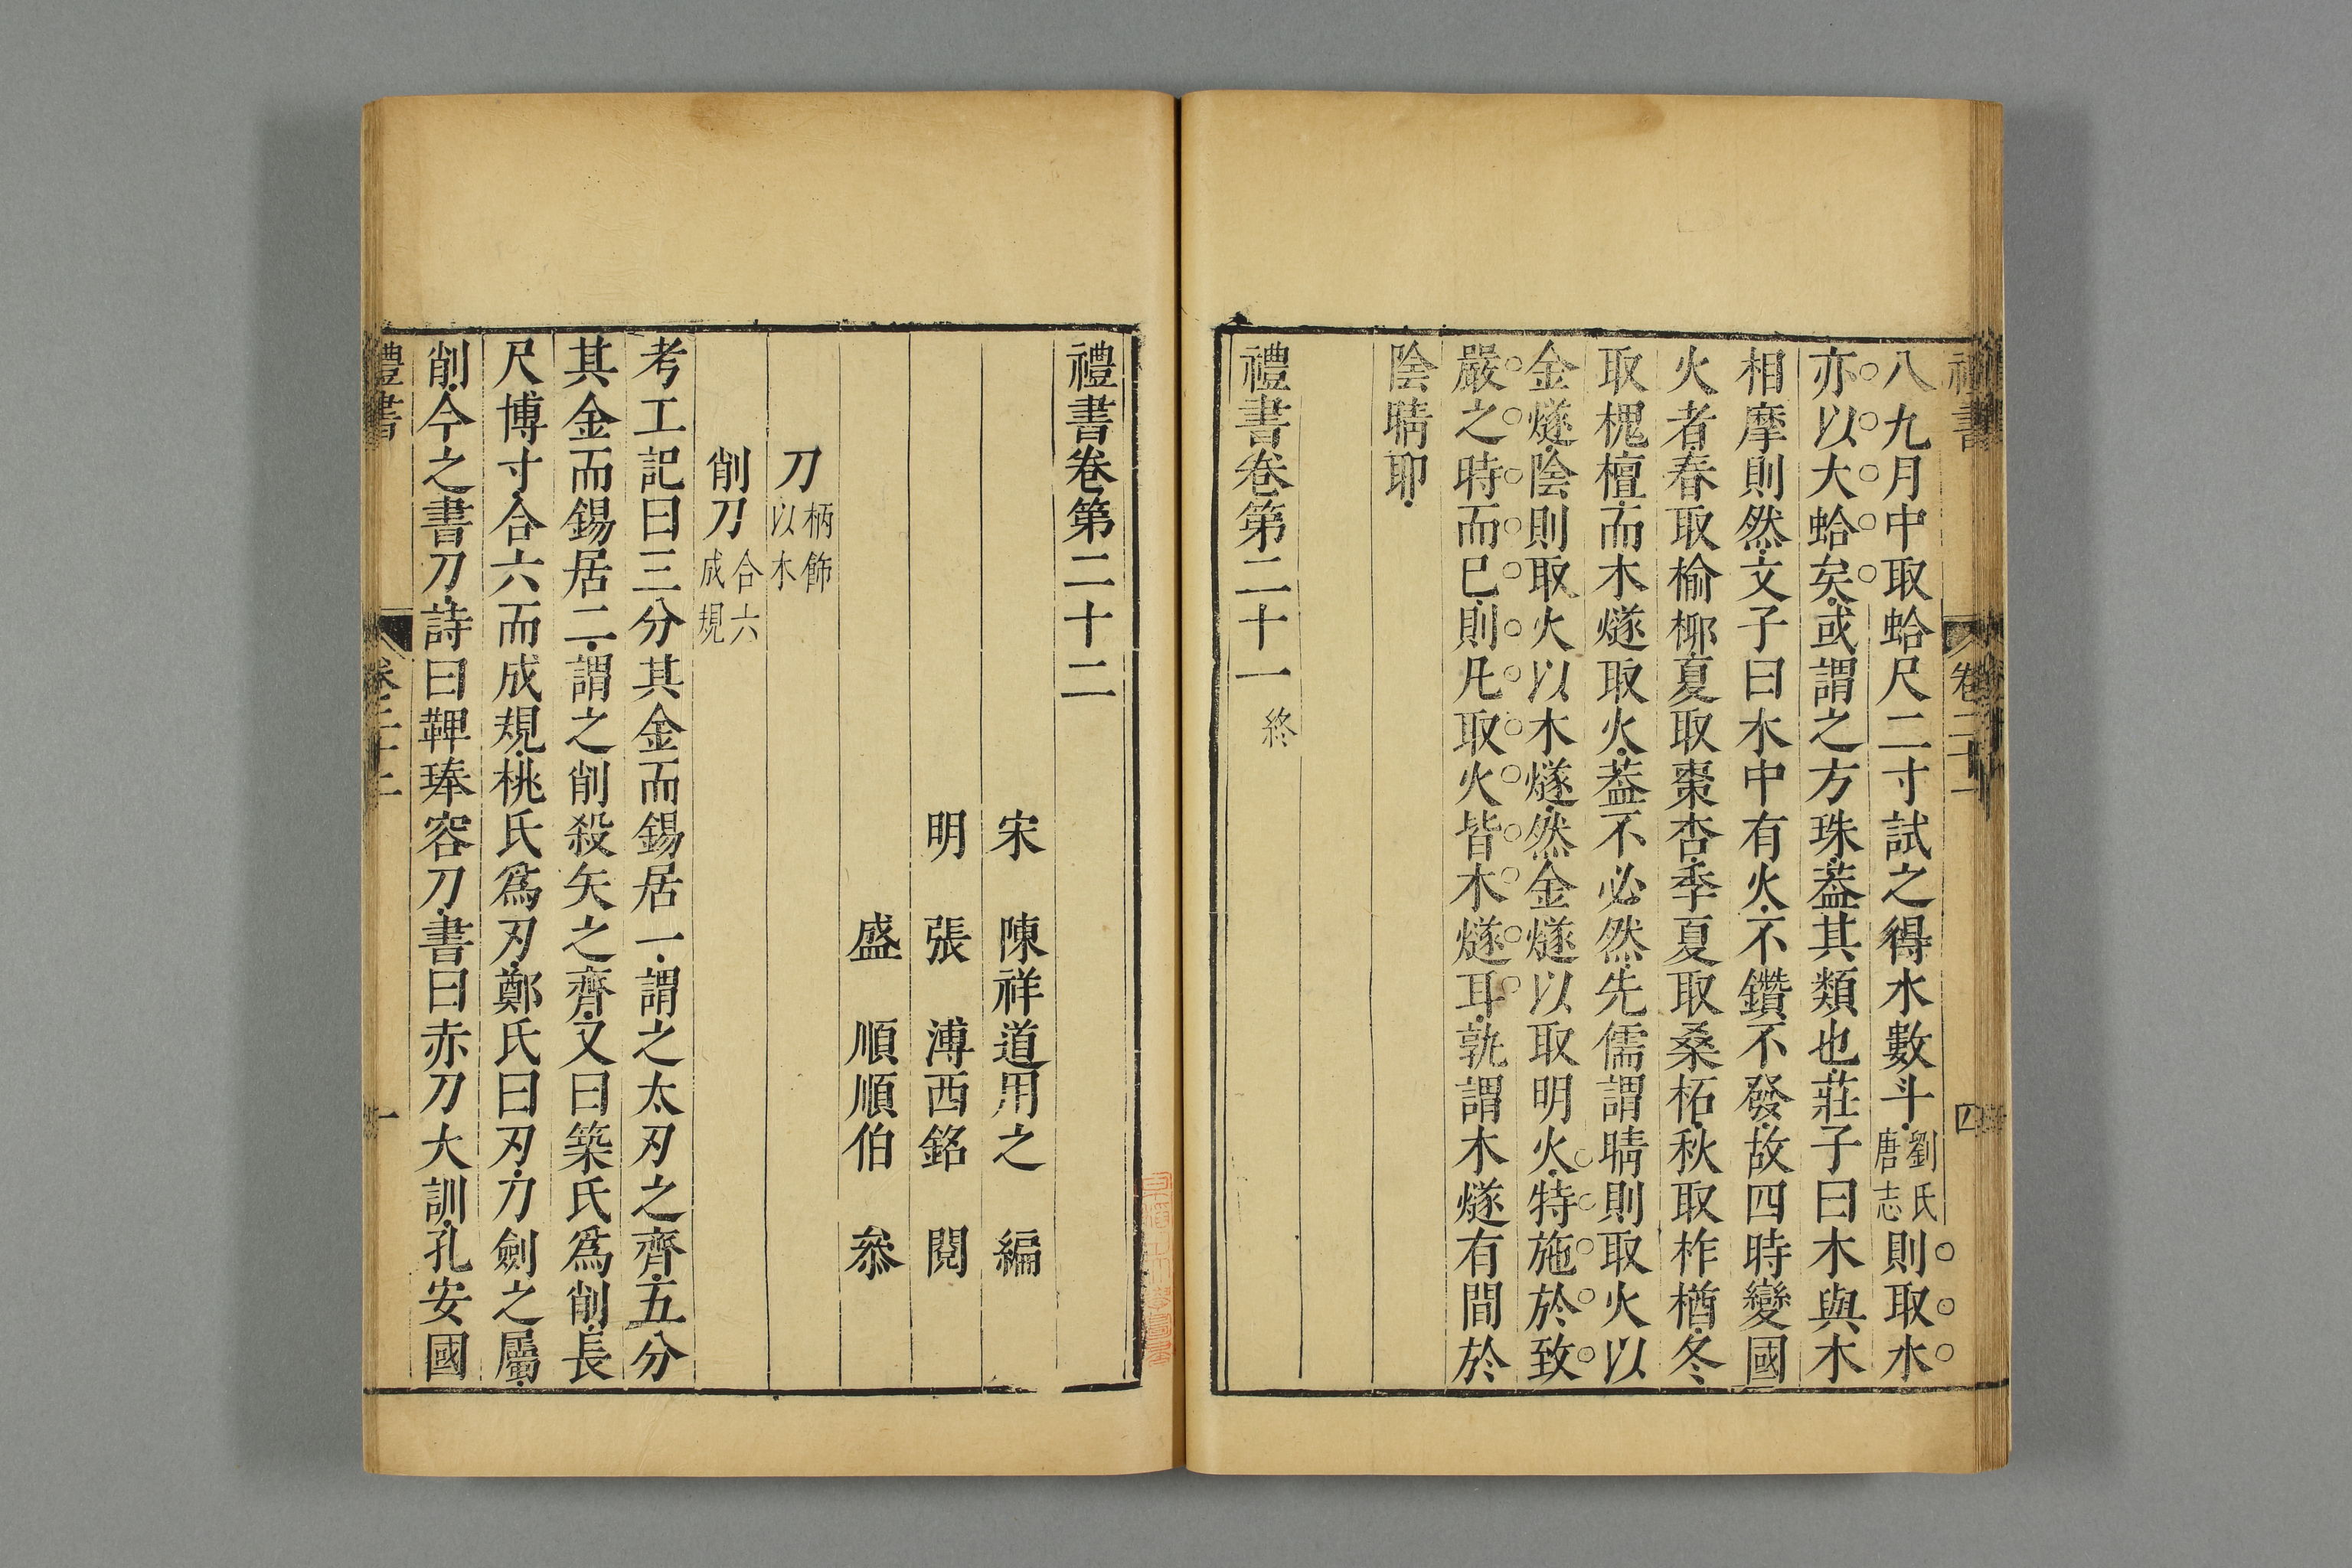 禮書
卷二十一
四
八九月中取蛤尺二寸試之得水數斗劉氏唐志則取水
亦以大蛤矣或謂之方珠葢其類也莊子曰木與木
相摩則然文子曰木中有火不鑽不發故四時變國
火者春取榆柳夏取棗杏季夏取桑柘秋取柞楢冬
取槐檀而木燧取火葢不必然先儒謂晴則取火以
金燧陰則取火以木燧然金燧以取明火特施於致
嚴之時而已則凡取火皆木燧耳孰謂木燧有間於
陰晴耶
禮書卷第二十一終
禮書卷第二十二
宋 陳祥道用之 編
明 張 溥西銘 閱
盛 順順伯 叅
刀柄飾以木
削刀合六成規
考工記曰三分其金而錫居一謂之大刃之齊五分
其金而錫居二謂之削殺矢之齊又曰築氏爲削長
尺博寸合六而成規桃氏爲刃鄭氏曰刃刀劍之屬
削今之書刀詩曰鞞琫容刀書曰赤刀大訓孔安國
禮書
卷二十二
一